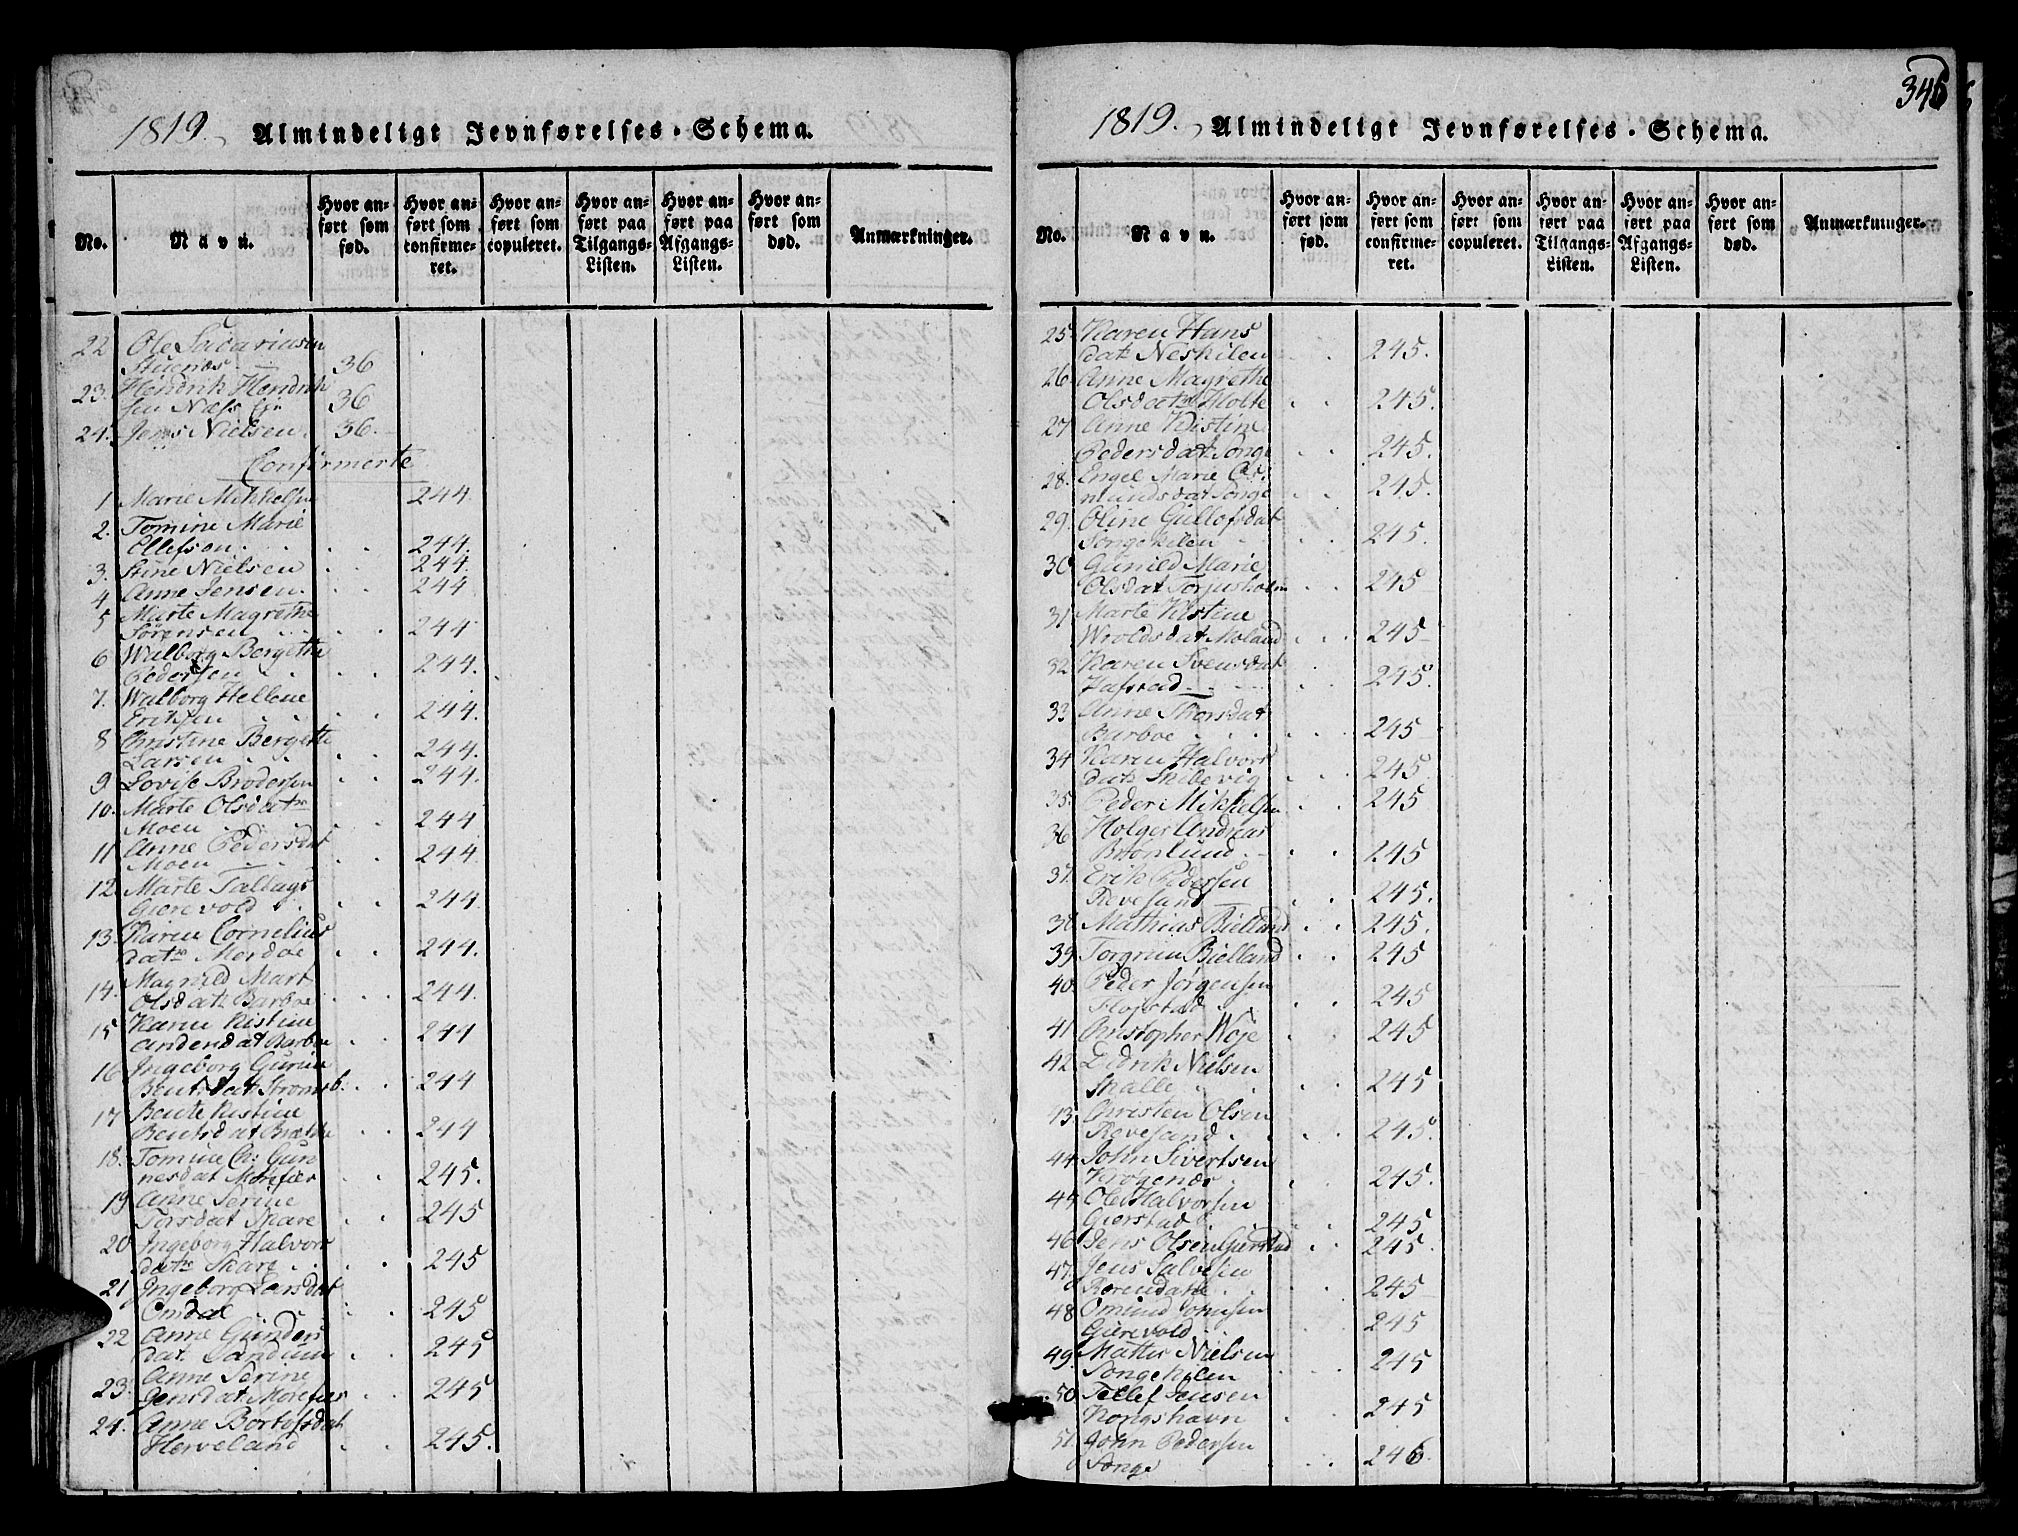 1819. Almindeligt Jevnførelses-Schema.
No. Navn. Hvor anført som fød. Hvor anført som confirmeret. Hvor anført som copuleret. Hvor anført paa Tilgangs-Listen. Hvor anført paa Afgangs-Listen. Hvor anført som død. Anmærkninger.
22 Ole Sacariasen
Stuenes 36
23. Hendrik Hendrik
sen Næss 36
24. Jens Nielsen. 36.
Confirmerte
1 Marie Mikkelsen 244
2. Tomine Marie
Ellefsen 244.
3. Stine Nielsen 244.
4 Anne Jensen. 244
5 Marte Magrethe
Sørensen 244
6 Walborg Bergethe
Pedersen 244.
7. Walborg Hellene
Eriksen 244.
8 Christine Bergette
Larsen 244.
9 Lovise Brodersen 244.
10. Marte Olsdatr
Moen 244
11 Anne Pedersdat
Moen 244
12. Marte Tallags
Gierevold 244.
13. Karen Cornelius
datr Merdøe 244.
14. Magnild Mart
Olsdatr Barboe 244.
15 Karen Kistine
Andersdat Barboe 244
16 Ingeborg Gurine
Bentsdat Strømsb. 244
17 Bente Kistine
Bentsdat Brække 244
18. Tomine Ch: Gun
nesdat Morefiær 245.
19 Anne Serine
Torsdat Skare 245
20 Ingeborg Halvors
datr Skare 245
21 Ingeborg Larsdat
Omdal 245
22 Anne Gunders
dat. Sandum 245
23. Anne Serine
Jensdat Morefiær 245
24. Anne Bortesdat
Herveland 245.
346
1819. Almindeligt Jevnførelses-Schema.
No. Navn. Hvor anført som fød. Hvor anført som confirmeret. Hvor anført som copuleret. Hvor anført paa Tilgangs-Listen. Hvor anført paa Afgangs-Listen. Hvor anført som død. Anmærkninger.
25. Karen Hans
datr Neskilen 245.
26. Anne Magrethe
Olsdatr Holte 245.
27 Anne Kistine
Pedersdat Songe 245.
28. Engel Marie Os
mundsdat Songe 245.
29. Oline Gullofsdat
Songekilen 245.
30 Gunild Marie
Olsdat Torjusholm 245
31 Marte Kistine
Wroldsdat Moland 245
32 Karen Svensdat
Hafstad 245.
33 Anne Thorsdat
Barboe 245
34 Karen Halvors
datr Skibevig 245
35. Peder Mikkelsen 245
36 Holger Andreas
Brønlund 245
37. Erik Pedersen
Revesand 245.
38 Mathias Bielland 245.
39 Torgrim Bielland 245
40. Peder Jørgensen
Flogstad 245
41 Christopher Woje 245
42. Didrik Nielsen
Skalle 245
43. Christen Olsen
Revesand 245.
44 John Sivertsen
Krogenæs 245.
45 Ole Halvorsen
Gierstad 245
46 Jens Olsen Gierstad 245.
47. Jens Salvesen
Rorendahl 245
48 Omund Jonsen
Gierevold 245
49. Mattis Nielsen
Songekilen 245
50 Tellef Jensen
Kongshavn 245
51 John Pedersen
Songe 246.